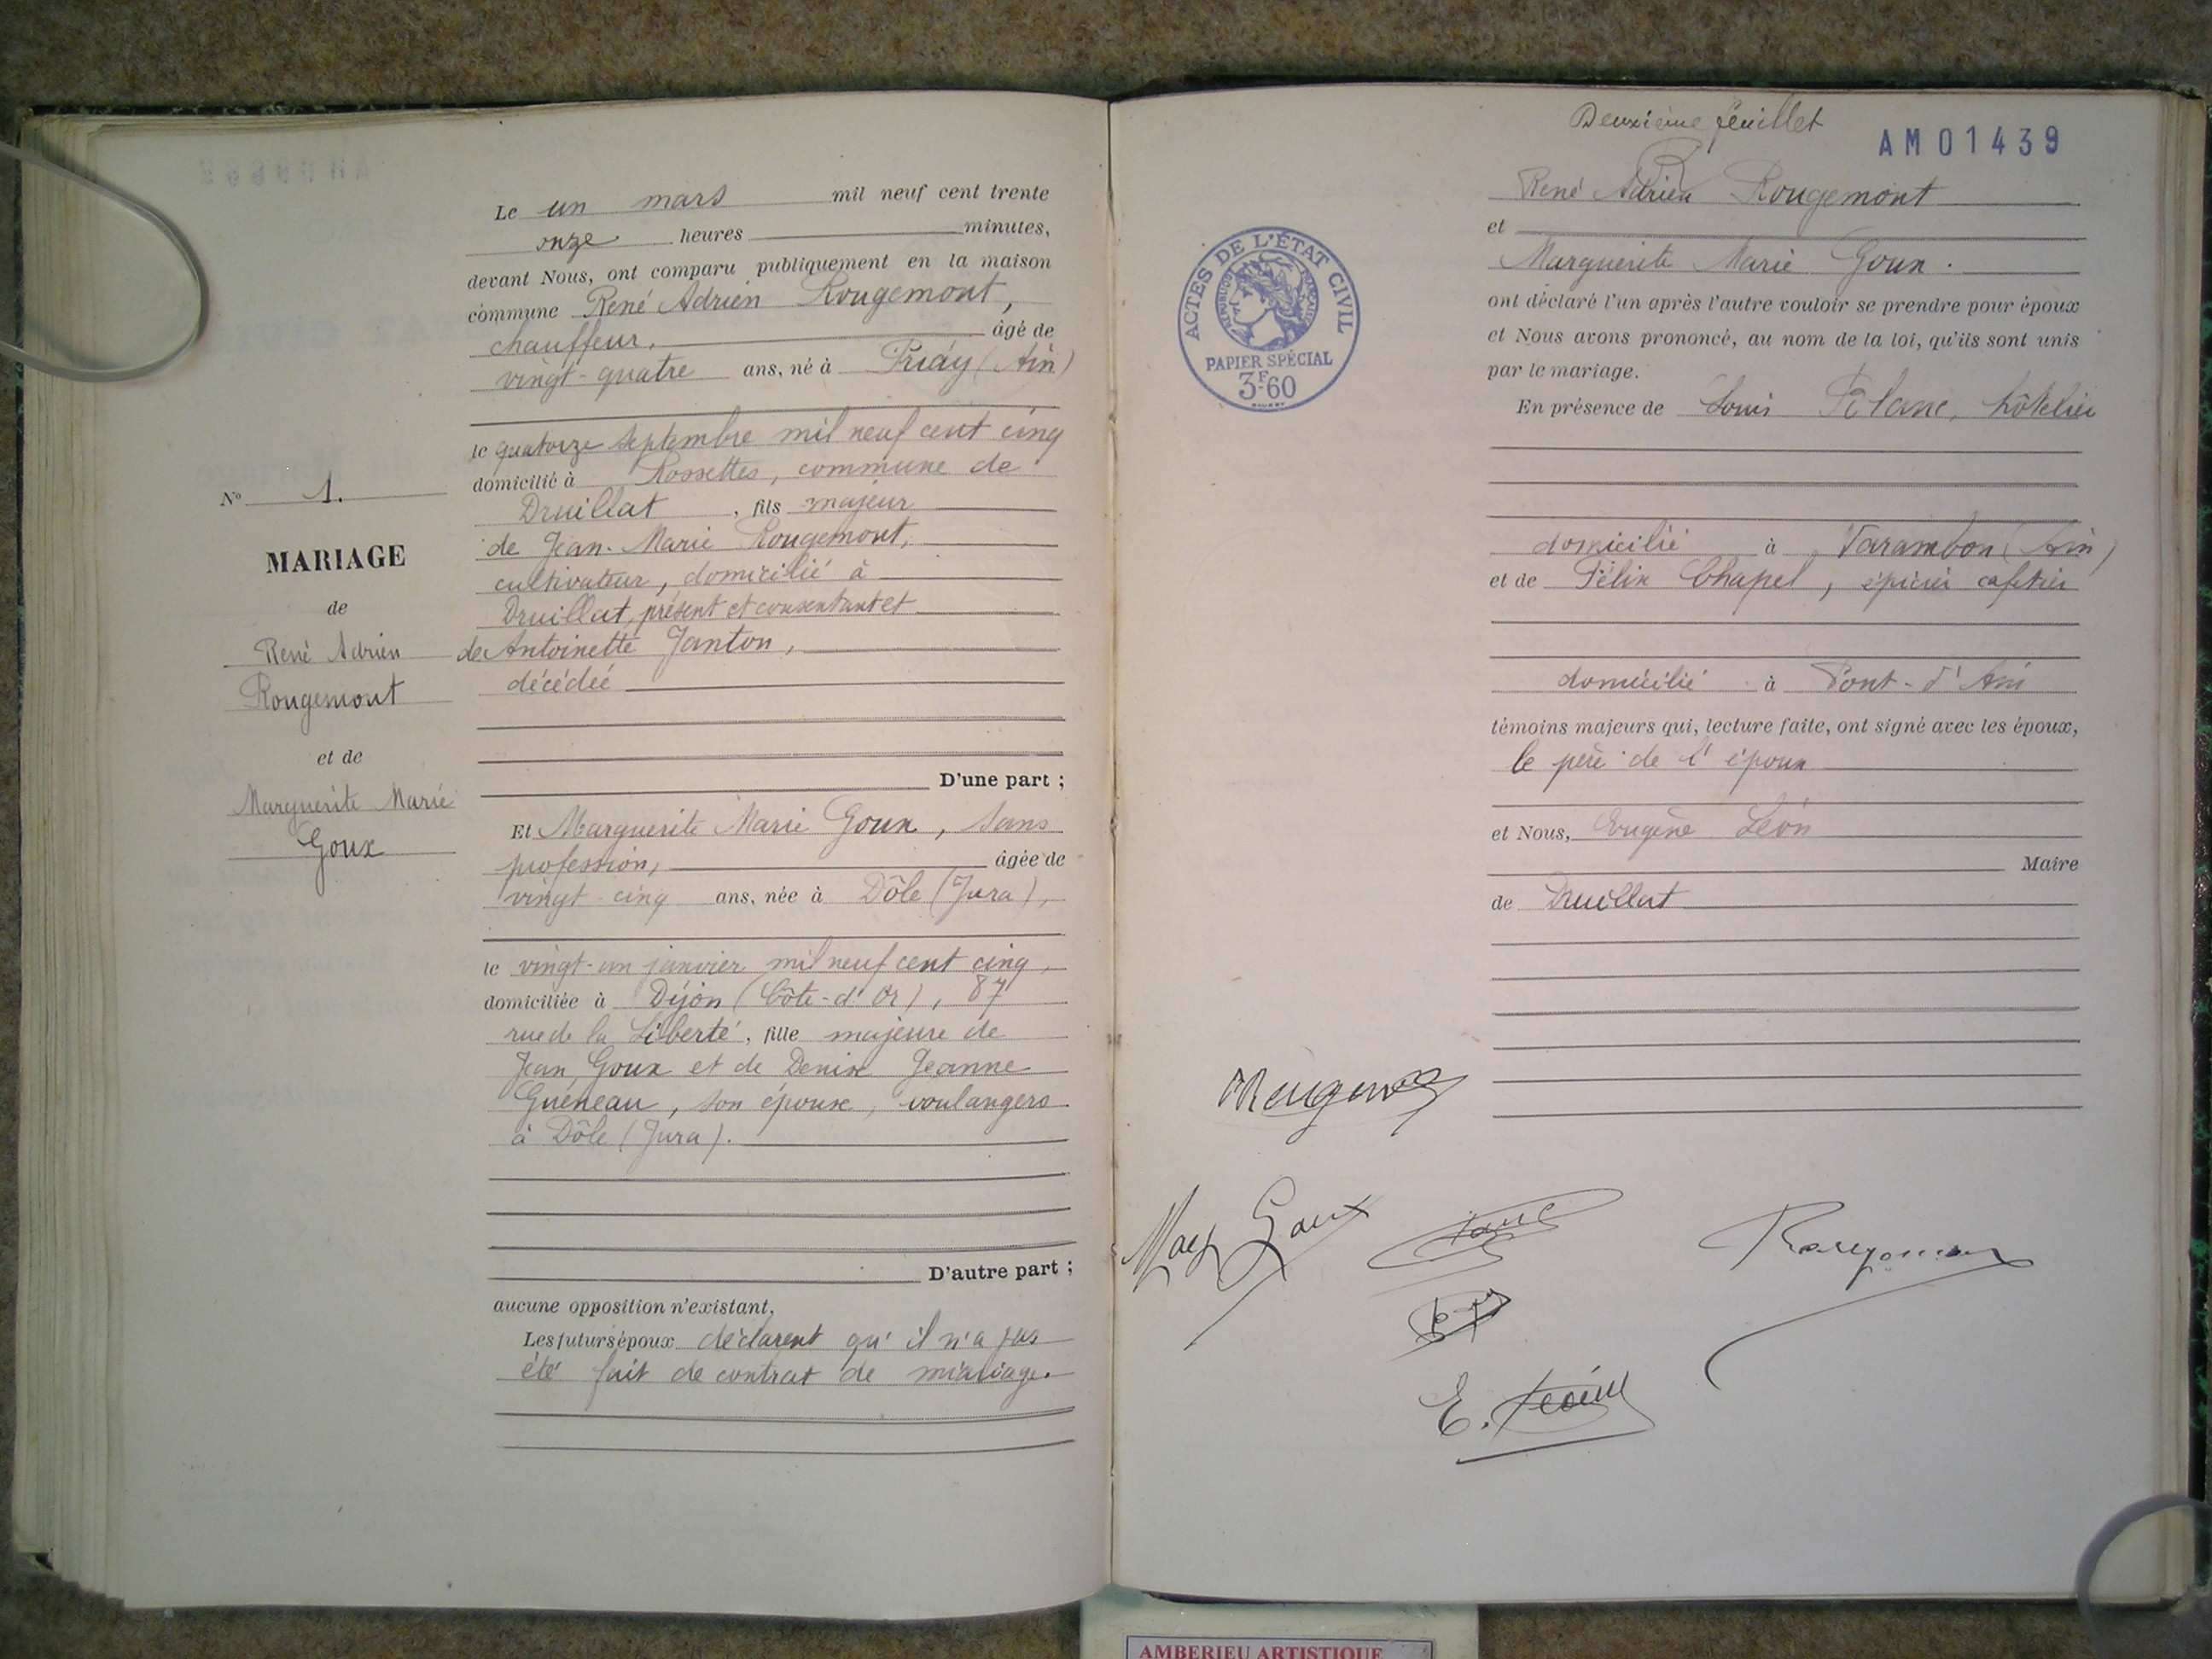 Le un mars mil neuf cent trente
onze heures minutes,
devant Nous, ont comparu publiquement en la maison
commune René Adrien Rougemont,
chauffeur, âgé de
vingt-quatre ans, né à Priay (Ain)
le quatorze septembre mil neuf cent cinq
domicilié à Rossettes, commune de
Druillat, fils majeur
de Jean-Marie Rougemont,
cultivateur, domicilié à
Druillat, présent et consentant et
de Antoinette Janton,
décédée
D'une part ;
N° 1.
MARIAGE
de
René Adrien
Rougemont
et de
Marguerite Marie
Goux
Et Marguerite Marie Goux, sans
profession, âgée de
vingt-cinq ans, née à Dôle (Jura),
le vingt-un janvier mil neuf cent cinq,
domiciliée à Dijon (Côte-d'Or), 87
rue de la Liberté, fille majeure de
Jean Goux et de Denise Jeanne
Guéneau, son épouse, voulangers
à Dôle (Jura).
D'autre part ;
aucune opposition n'existant,
Les futurs époux déclarent qu'il n'a pas
été fait de contrat de mariage.
Deuxième feuillet
AM01439
René Adrien Rougemont
et
Marguerite Marie Goux.
ont déclaré l'un après l'autre vouloir se prendre pour époux
et Nous avons prononcé, au nom de la loi, qu'ils sont unis
par le mariage.
En présence de Louis hôtelier
domicilié à Varambon (Ain)
et de Félix Chapel, épicier cafetier
domicilié à Pont-d'Ain
témoins majeurs qui, lecture faite, ont signé avec les époux,
le père de l'époux
et Nous, Eugène Léon
Maire
de Druillat
ACTES DE L'ÉTAT CIVIL
RÉPUBLIQUE FRANÇAISE
PAPIER SPÉCIAL
3F.60
Marg Goux
E. Léon
AMBERIEU ARTISTIQUE